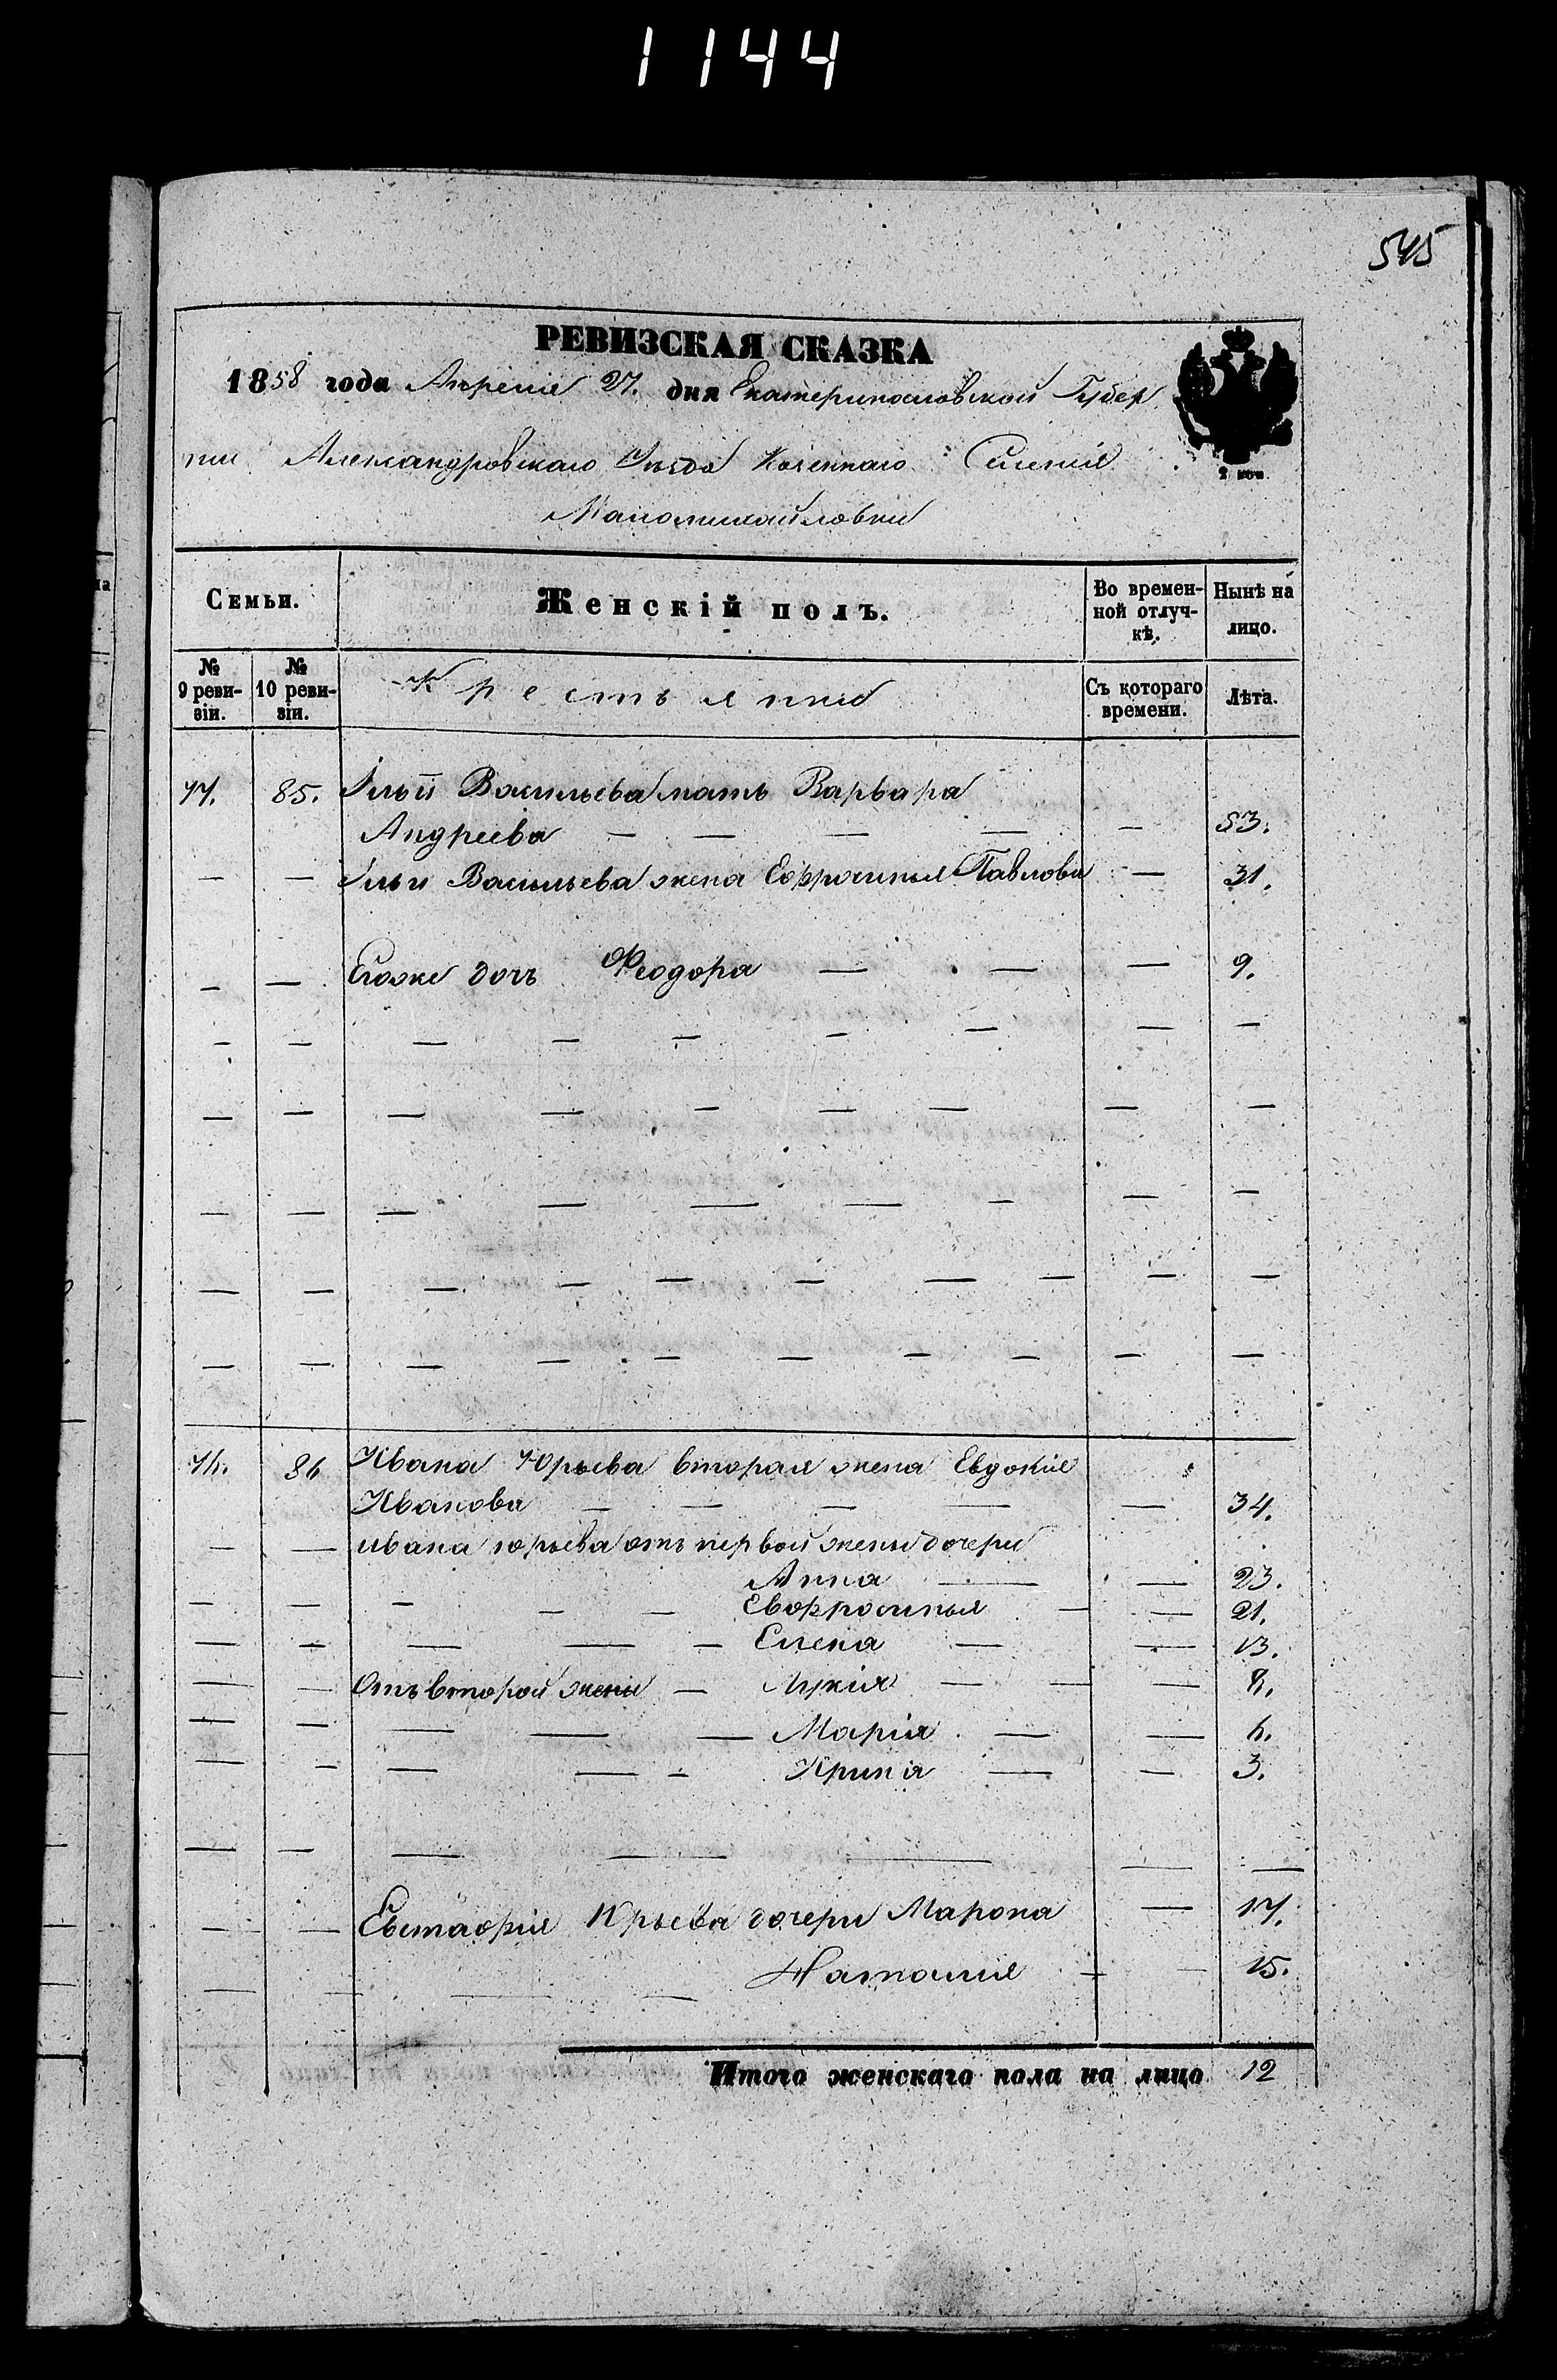 1144
545
РЕВИЗСКАЯ СКАЗКА
1858 года Апреля 27. дня Екатеринославской Губер
нии Александровскаго Уезда Казеннаго Селенія
Маломихайловки
Семьи.
Женскій полъ.
Во времен-
ной отлуч-
кѣ.
Нынѣ на
лицо.
№
9 реви-
зіи.
№
10 реви-
зіи.
Крестьянки
Съ котораго
времени.
Лѣта.
77. 85. Ильи Васильева мать Варвара
Андреева — — — — — 53.
— — Ильи Васильева жена Ефросинья Павлова — 31.
— — Егоже дочь Феодора — — — 9.
86 Ивана Юрьева вторая жена Евдокія
Иванова — — — — — 34.
— — ивана юрьева отъ первой жены дочери
Анна — — 23.
— — — — — Евфросинья — — 21.
— — — — — Елена — — 13.
— — Отъ второй жены — Лукія — — — 8.
— — — — — Марія — — 6.
— — — — — Ирина — — 3.
— — Евстафія Юрьева дочери Марѳа — 17.
— — — — Наталія — — 15.
Итого женскаго пола на лицо 12
2 коп.